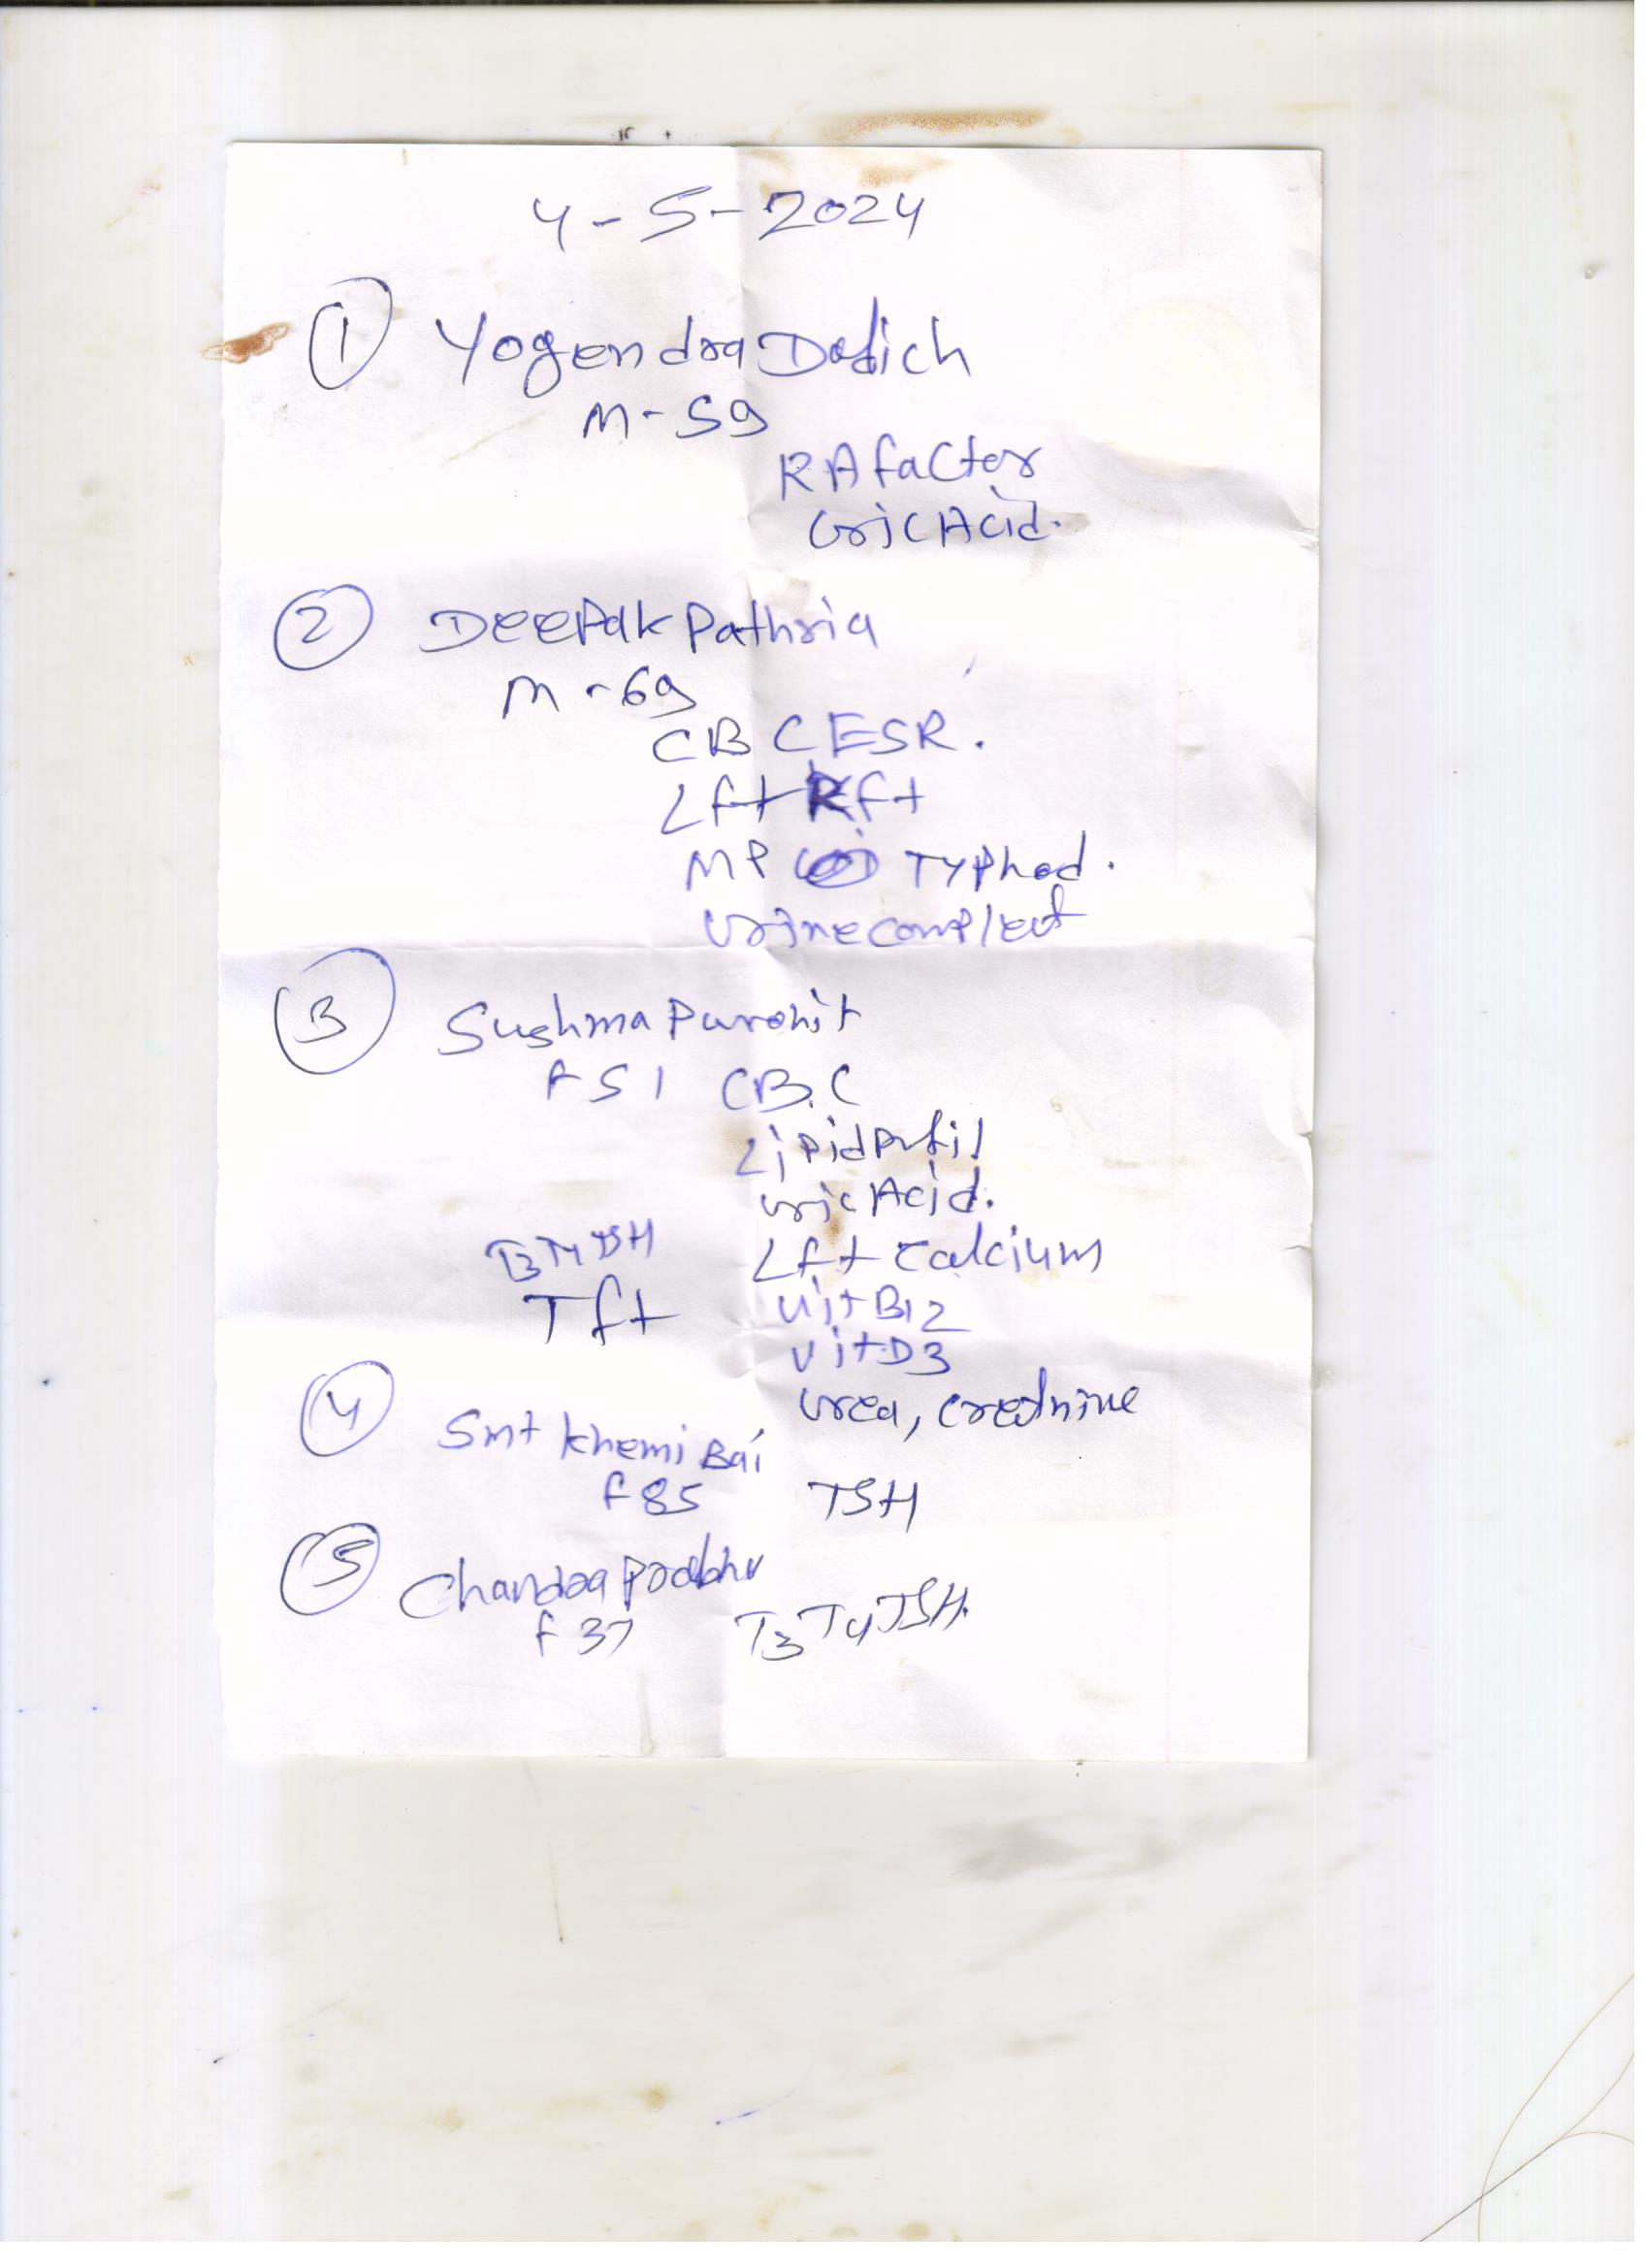 4-5-2024
1 Yogendra Dadich
M-59
RA factor
Uric Acid.
2 Deepak Pathria
M-69
CBC ESR.
Lft Rft
MP Typhod.
Urine complect
3 Sushma Purohit
F 51 CB.C
Lipid Profil
Uric Acid.
T3 T4 TSH Lft Calcium
Tft Vit B12
Vit D3
Urea, Creatnine
4 Smt Khemi Bai
F 85 TSH
5 Chandra Prabhu
F 37 T3 T4 TSH.